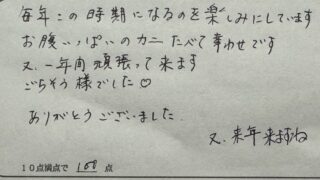 毎年この時期になるのを楽しみにしています
お腹いっぱいのカニたべて幸わせです
又、一年間頑張って来ます
ごちそう様でした♡
ありがとうございました。
又、来年来ますね
10点満点で 100 点